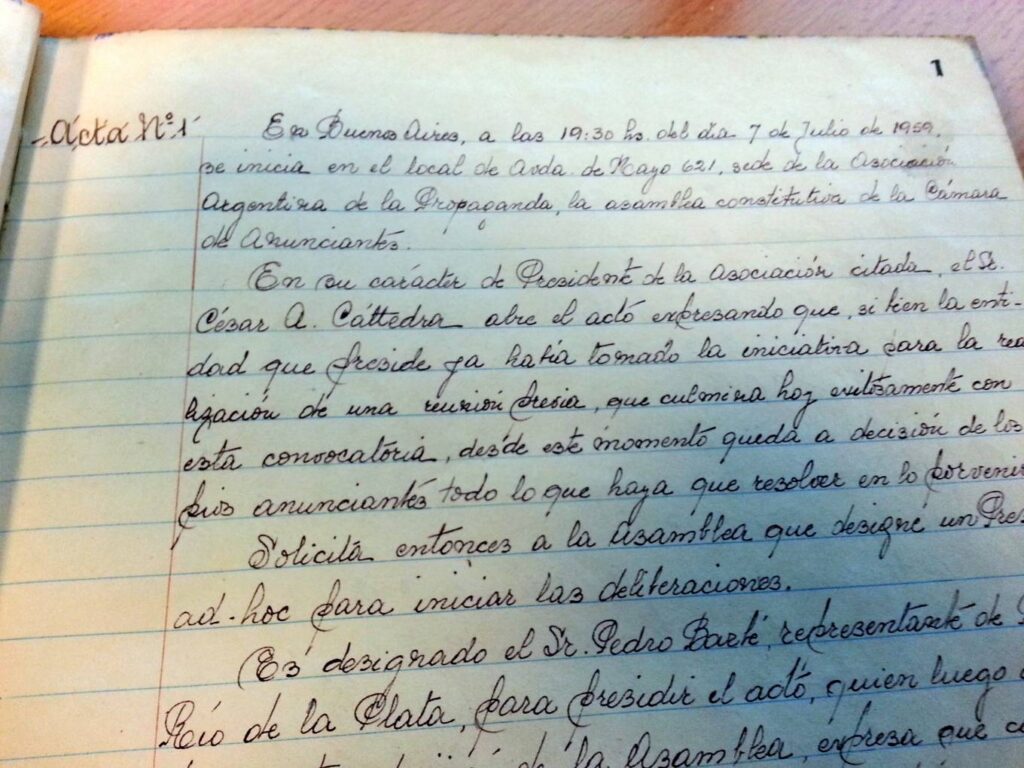 1
- Acta Nº 1 En Buenos Aires, a las 19:30 hs. del día 7 de Julio de 1959,
se inicia en el local de Avda. de Mayo 621, sede de la Asociación
Argentina de la Propaganda, la asamblea constitutiva de la Cámara
de Anunciantes.
En su carácter de Presidente de la Asociación citada, el Sr.
César A. Cáttedra abre el acto expresando que, si bien la enti-
dad que preside ya había tomado la iniciativa para la rea
lización de una reunión previa, que culmina hoy exitosamente con
esta convocatoria, desde este momento queda a decisión de los
pios anunciantes todo lo que haya que resolver en lo porvenir
Solicita entonces a la Asamblea que designe un Pres
ad-hoc para iniciar las deliberaciones.
Es designado el Sr. Pedro Barbé, representante de
Río de la Plata, para presidir el acto, quien luego
de la Asamblea, expresa que